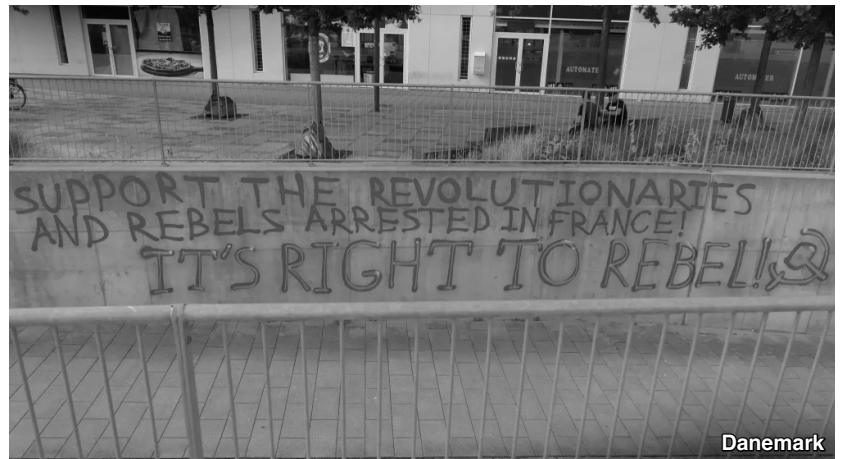 AUTOMATE
SUPPORT THE REVOLUTIONARIES
AND REBELS ARRESTED IN FRANCE!
IT'S RIGHT TO REBEL!
Danemark